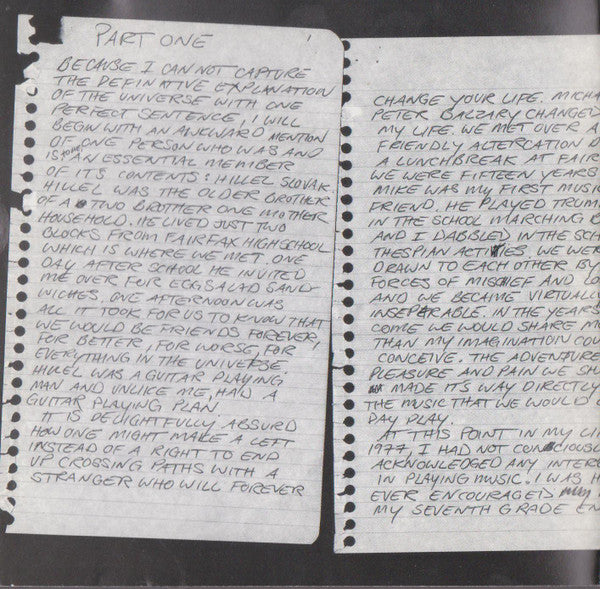 PART ONE
BECAUSE I CAN NOT CAPTURE
THE DEFINATIVE EXPLANATION
OF THE UNIVERSE WITH ONE
PERFECT SENTENCE, I WILL
BEGIN WITH AN AWKWARD MENTION
OF ONE PERSON WHO WAS AND
IS TO ME AN ESSENTIAL MEMBER
OF ITS CONTENTS: HILLEL SLOVAK.
HILLEL WAS THE OLDER BROTHER
OF A TWO BROTHER ONE MOTHER
HOUSEHOLD. HE LIVED JUST TWO
BLOCKS FROM FAIRFAX HIGH SCHOOL
WHICH IS WHERE WE MET. ONE
DAY AFTER SCHOOL HE INVITED
ME OVER FUR EGG SALAD SAND-
WICHES. ONE AFTERNOON WAS
ALL IT TOOK FOR US TO KNOW THAT
WE WOULD BE FRIENDS FOREVER,
FOR BETTER, FOR WORSE, FOR
EVERYTHING IN THE UNIVERSE.
HILLEL WAS A GUITAR PLAYING
MAN AND UNLIKE ME, HAD A
GUITAR PLAYING PLAN.
IT IS DELIGHTFULLY ABSURD
HOW ONE MIGHT MAKE A LEFT
INSTEAD OF A RIGHT TO END
UP CROSSING PATHS WITH A
STRANGER WHO WILL FOREVER
CHANGE YOUR LIFE. MICHA
PETER BALZARY CHANGED
MY LIFE. WE MET OVER A
FRIENDLY ALTERCATION D
A LUNCHBREAK AT FAIR
WE WERE FIFTEEN YEARS
MIKE WAS MY FIRST MUSIC
FRIEND. HE PLAYED TRUM
IN THE SCHOOL MARCHING B
AND I DABBLED IN THE SCH
THESPIAN ACTIVITIES. WE WER
DRAWN TO EACH OTHER BY
FORCES OF MISCHIEF AND LO
AND WE BECAME VIRTUALLY
INSEPERABLE. IN THE YEARS
COME WE WOULD SHARE MO
THAN MY IMAGINATION COU
CONCEIVE. THE ADVENTURE
PLEASURE AND PAIN WE SH
MADE ITS WAY DIRECTLY
THE MUSIC THAT WE WOULD
DAY PLAY.
AT THIS POINT IN MY LI
1977, I HAD NOT CONSCIOUSL
ACKNOWLEDGED ANY INTER
IN PLAYING MUSIC. I WAS H
EVER ENCOURAGED
MY SEVENTH GRADE EN